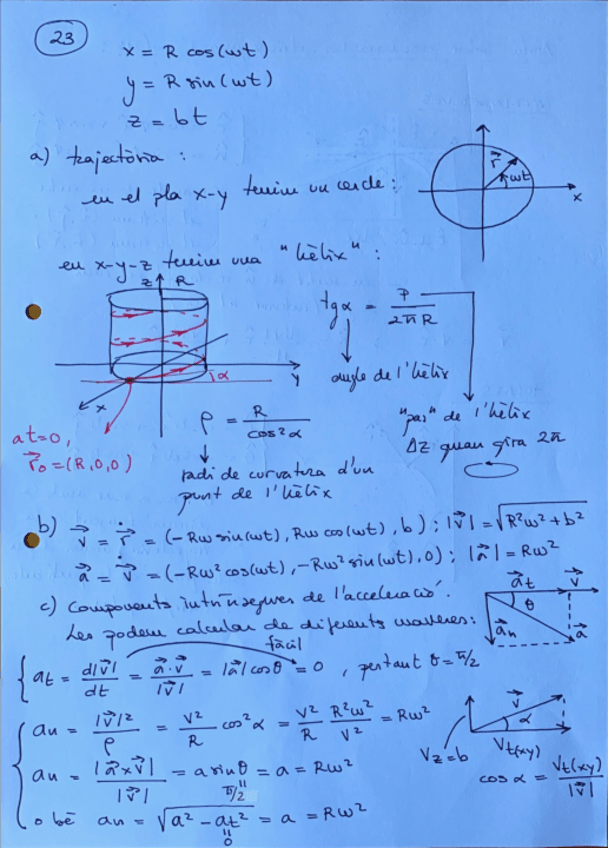 23
x = R cos(ωt)
y = R sin(ωt)
z = bt
a) trajectòria :
en el pla x-y tenim un cercle :
r⃗
ωt
x
en x-y-z tenim una "hèlix" :
z
R
y
x
α
at=0,
r⃗₀=(R,0,0)
tgα = P / 2πR
angle de l'hèlix
"pas" de l'hèlix
Δz quan gira 2π
ρ = R / cos²α
radi de curvatura d'un
punt de l'hèlix
b) v⃗ = ṙ⃗ = (-Rω sin(ωt), Rω cos(ωt), b) ; |v⃗| = √(R²ω²+b²)
a⃗ = v̇⃗ = (-Rω² cos(ωt), -Rω² sin(ωt), 0) ; |a⃗| = Rω²
c) Components intrínseques de l'acceleració.
Les podem calcular de diferents maneres :
a⃗t
v⃗
θ
a⃗n
a⃗
fàcil
at = d|v⃗| / dt = a⃗·v⃗ / |v⃗| = |a⃗| cosθ = 0 , per tant θ = π/2
an = |v⃗|² / ρ = v² / R cos²α = v² / R R²ω² / v² = Rω²
an = |a⃗×v⃗| / |v⃗| = a sinθ = a = Rω²
π/2
o bé an = √(a² - at²) = a = Rω²
0
v⃗
α
Vz=b
Vt(xy)
cosα = Vt(xy) / |v⃗|